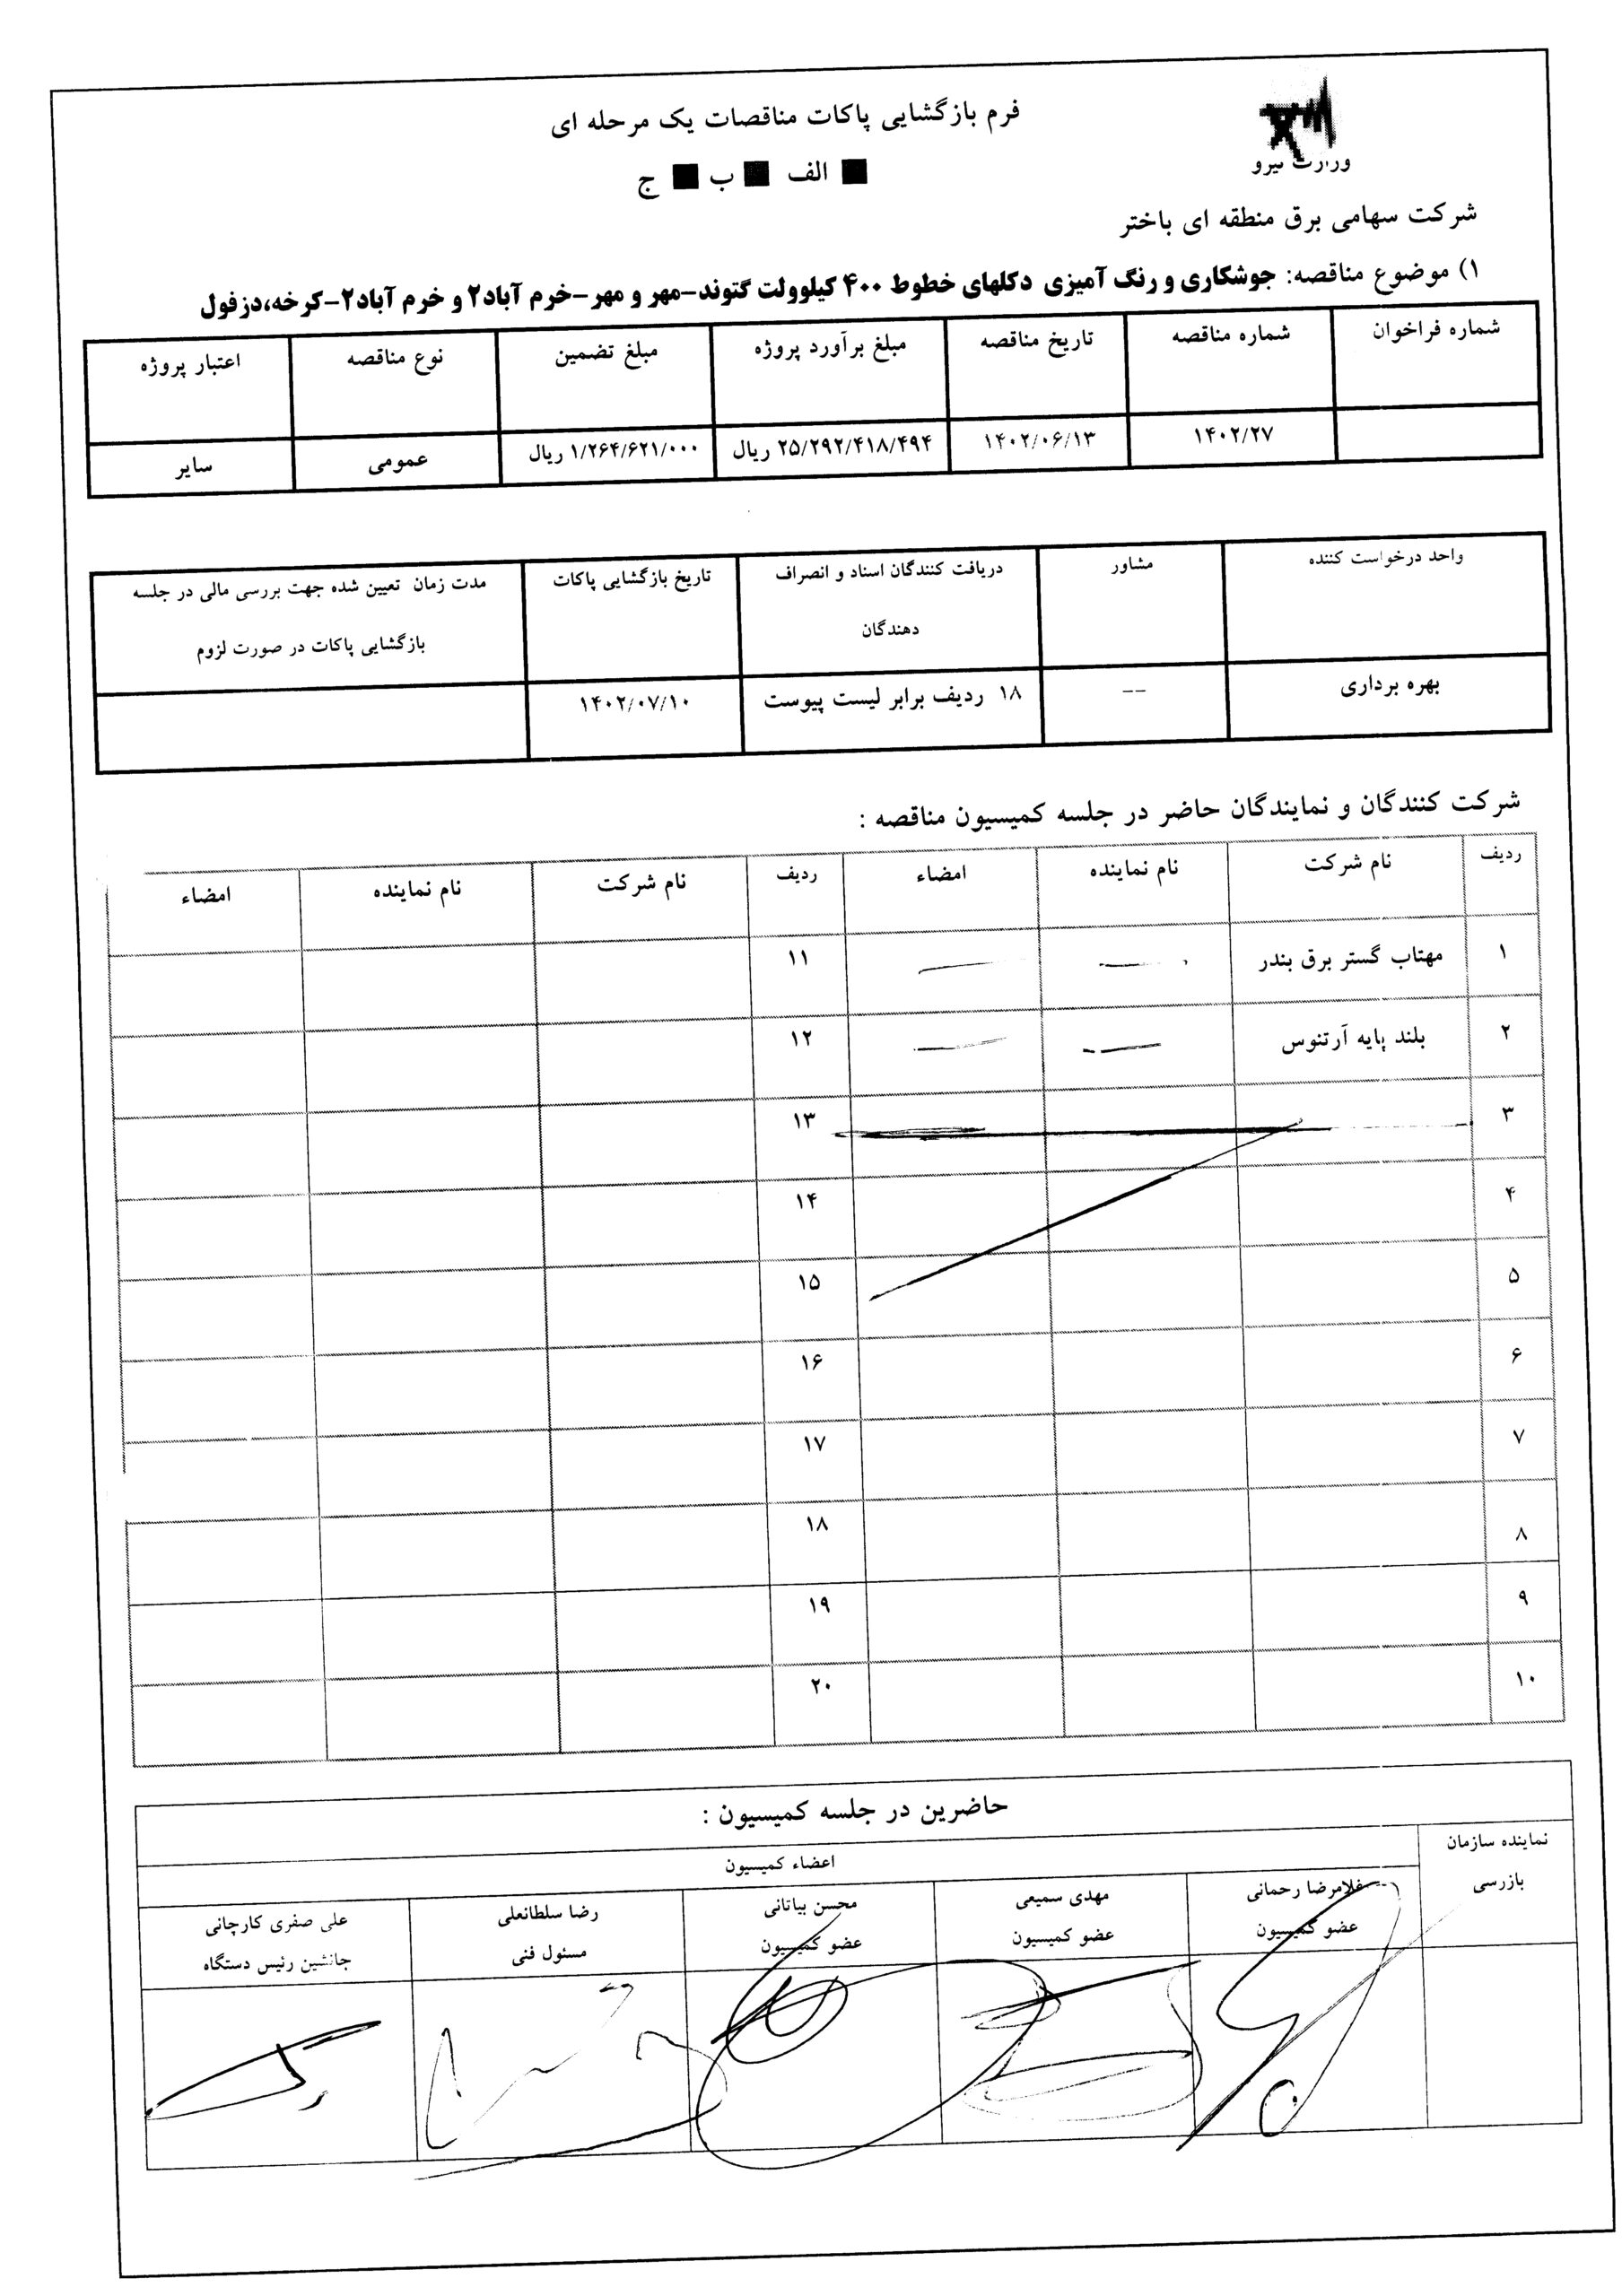 فرم بازگشایی پاکات مناقصات یک مرحله ای
■ الف ■ ب ■ ج
وزارت نیرو
شرکت سهامی برق منطقه ای باختر
۱) موضوع مناقصه: جوشکاری و رنگ آمیزی دکلهای خطوط ۴۰۰ کیلوولت گتوند-مهر و مهر-خرم آباد۲ و خرم آباد۲-کرخه،دزفول
شماره فراخوان شماره مناقصه تاریخ مناقصه مبلغ برآورد پروژه مبلغ تضمین نوع مناقصه اعتبار پروژه
۱۴۰۲/۲۷ ۱۴۰۲/۰۶/۱۳ ۲۵/۲۹۲/۴۱۸/۴۹۴ ریال ۱/۲۶۴/۶۲۱/۰۰۰ ریال عمومی سایر
واحد درخواست کننده مشاور دریافت کنندگان اسناد و انصراف تاریخ بازگشایی پاکات مدت زمان تعیین شده جهت بررسی مالی در جلسه
دهندگان بازگشایی پاکات در صورت لزوم
بهره برداری -- ۱۸ ردیف برابر لیست پیوست ۱۴۰۲/۰۷/۱۰
شرکت کنندگان و نمایندگان حاضر در جلسه کمیسیون مناقصه :
ردیف نام شرکت نام نماینده امضاء ردیف نام شرکت نام نماینده امضاء
۱ مهتاب گستر برق بندر ۱۱
۲ بلند پایه آرتنوس ۱۲
۳ ۱۳
۴ ۱۴
۵ ۱۵
۶ ۱۶
۷ ۱۷
۸ ۱۸
۹ ۱۹
۱۰ ۲۰
حاضرین در جلسه کمیسیون :
نماینده سازمان
بازرسی
اعضاء کمیسیون
غلامرضا رحمانی مهدی سمیعی محسن بیاتانی رضا سلطانعلی علی صفری کارچانی
عضو کمیسیون عضو کمیسیون عضو کمیسیون مسئول فنی جانشین رئیس دستگاه